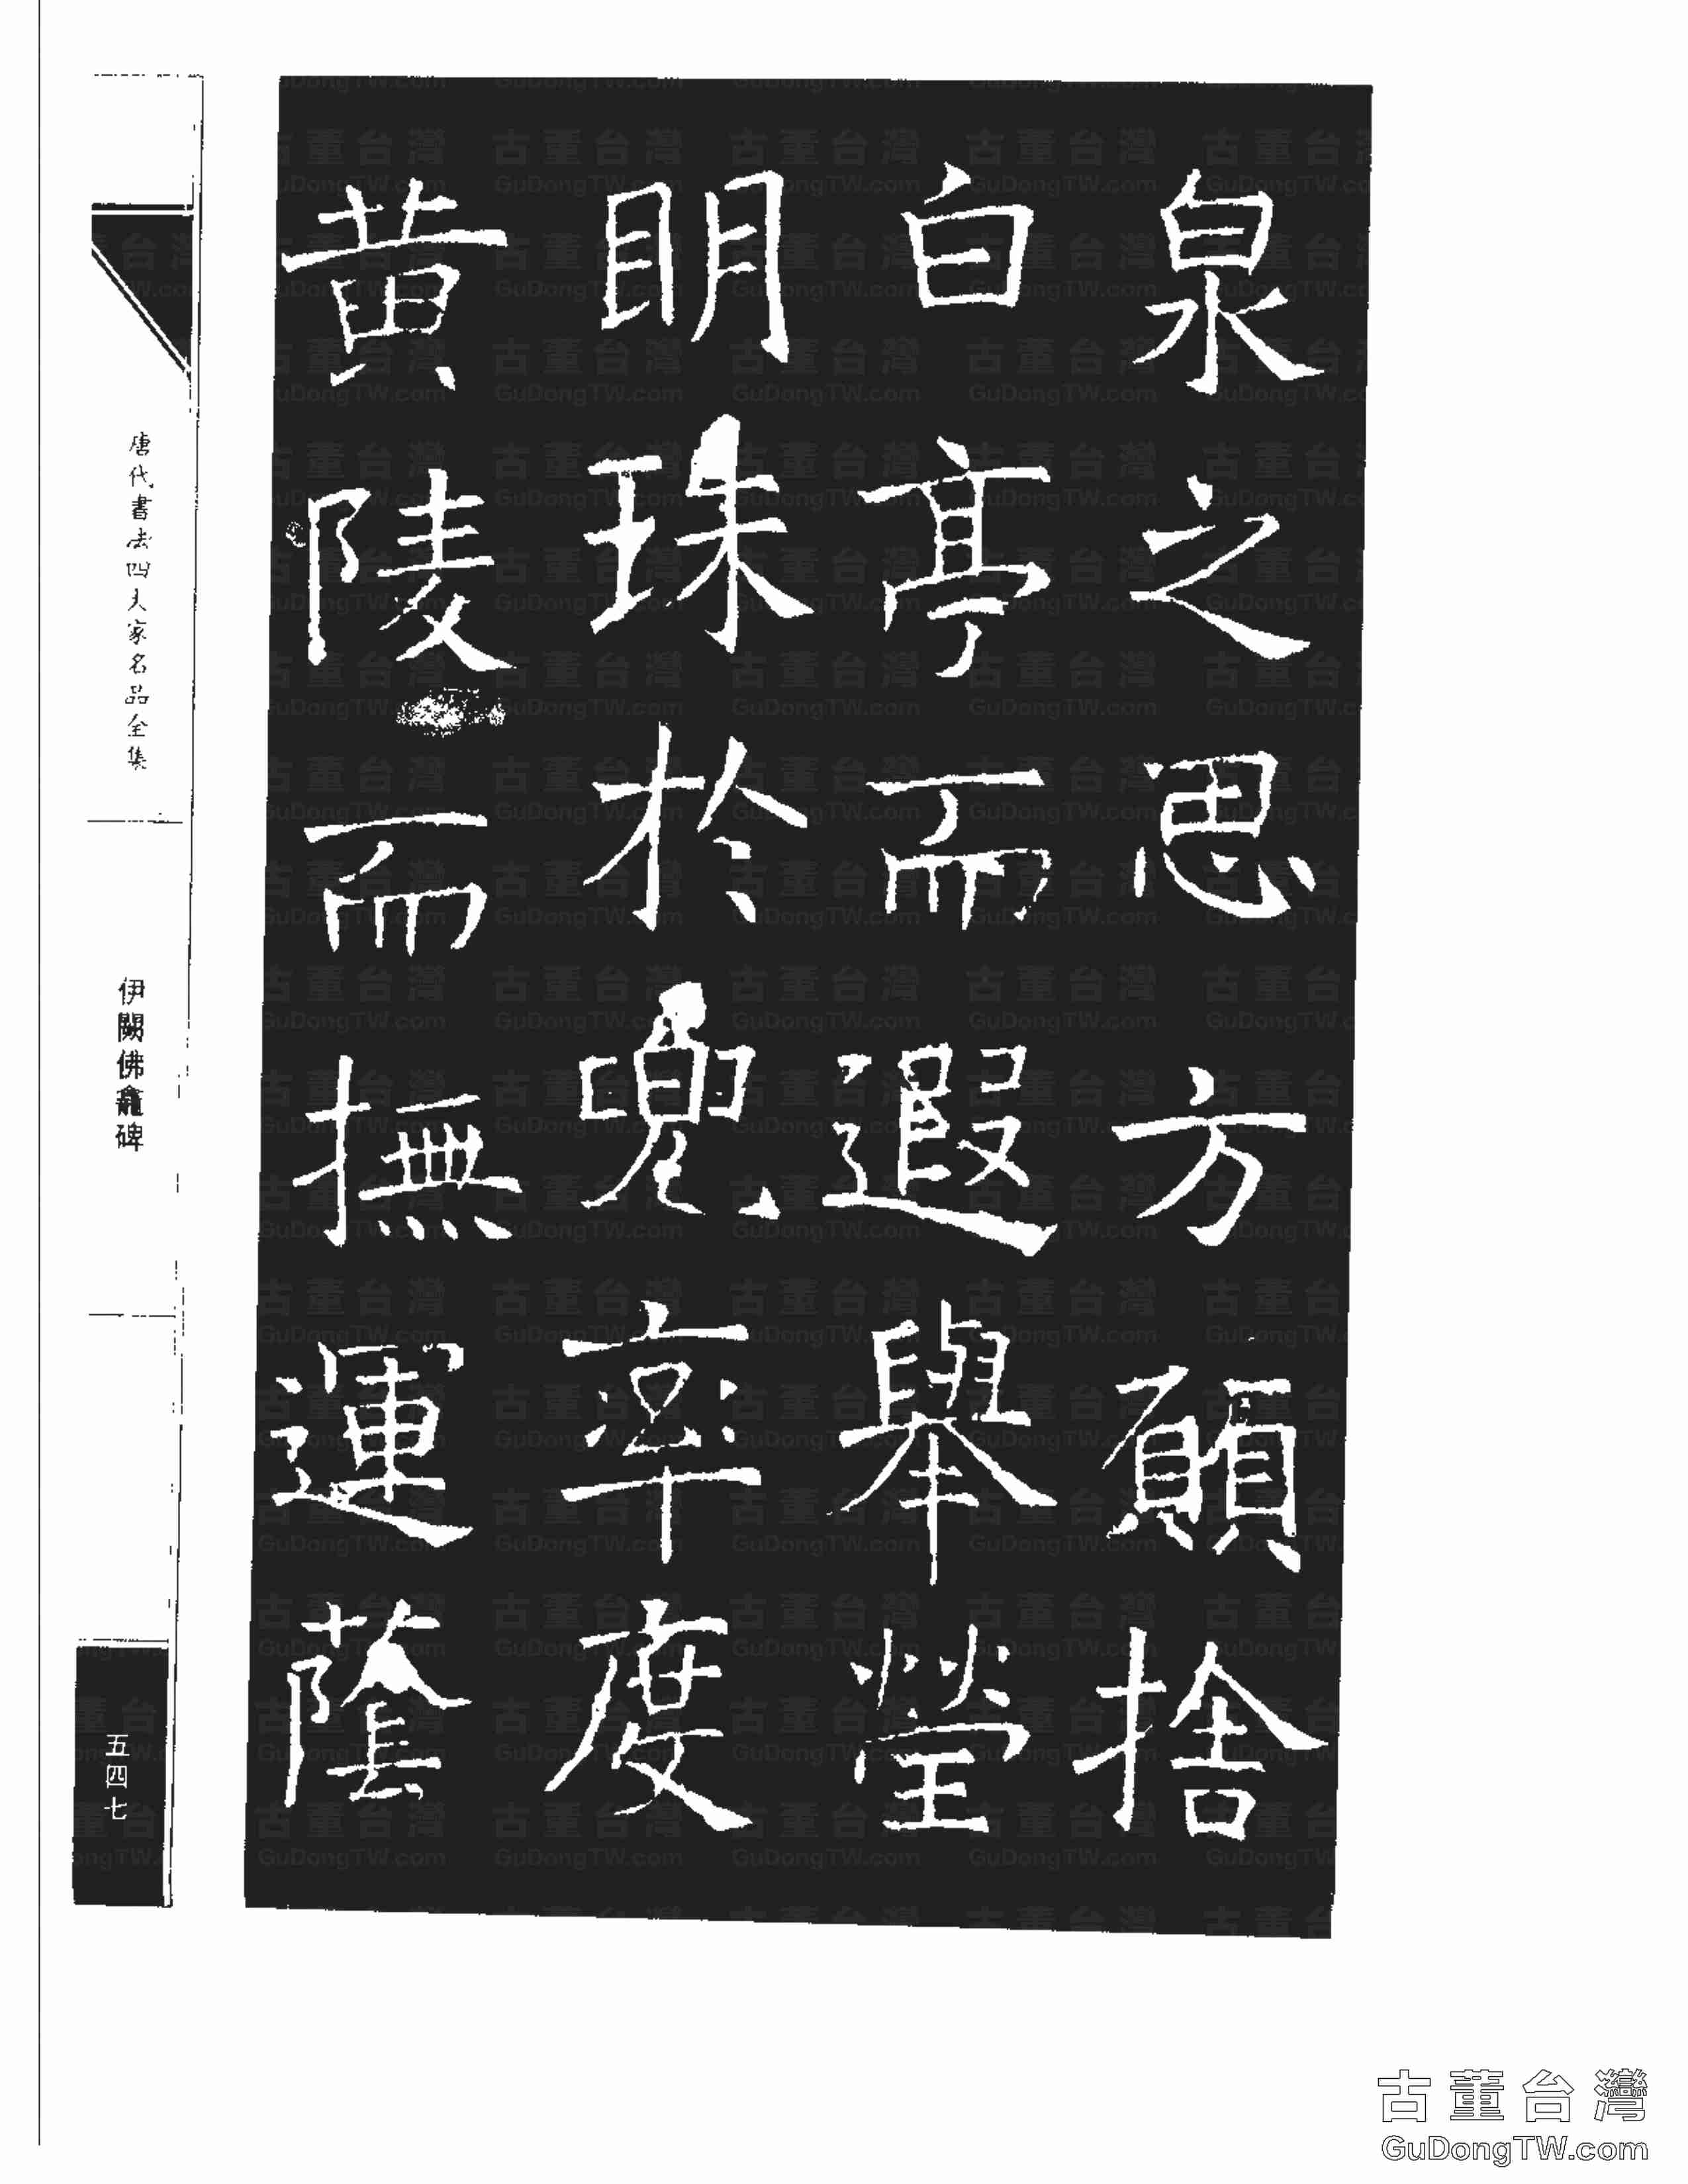 泉之思方願捨
白亭而遐舉瑩
明珠於兜率度
黃陵而撫運蔭
唐代書法四大家名品全集
伊闕佛龕碑
五四七
古董台灣
GuDongTW.com